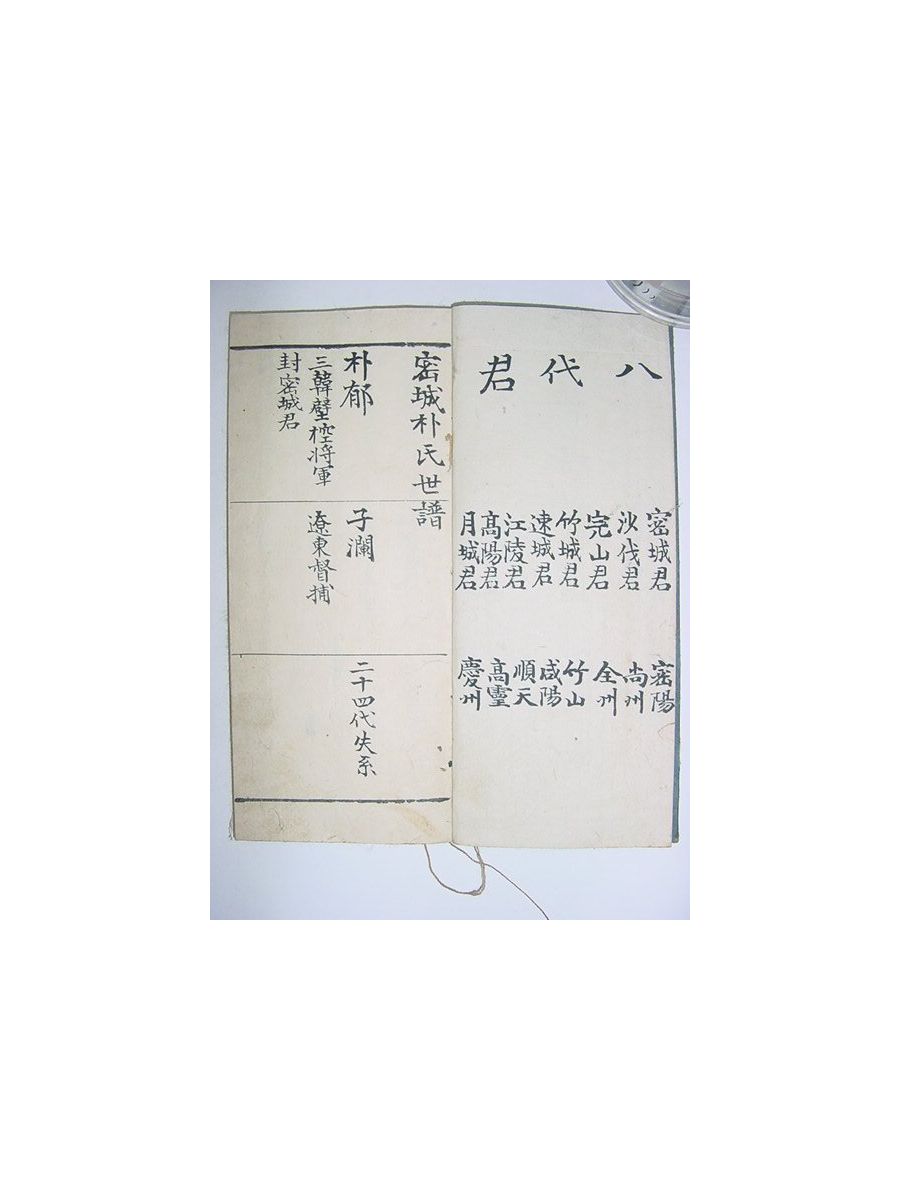 八代君
密城君
沙伐君
完山君
竹城君
速城君
江陵君
高陽君
月城君
密陽
尙州
全州
竹山
咸陽
順天
高靈
慶州
密城朴氏世譜
朴郁
三韓壁控將軍
封密城君
子瀾
遼東督捕
二十四代失系